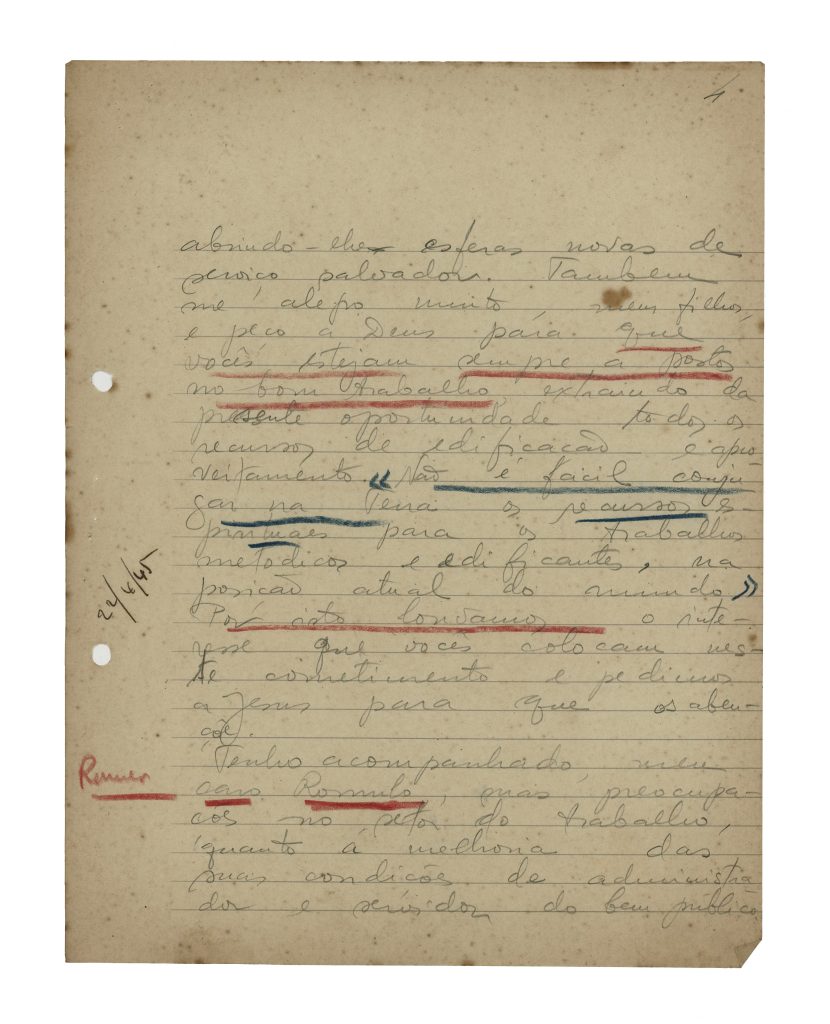 4
abrindo-lhe esferas novas de
serviço salvador. Tambem
me alegro muito, meus filhos,
e peço a Deus para que
vocês estejam sempre a postos
no bom trabalho, extraindo da
presente oportunidade todos os
recursos de edificacão e apro-
veitamento. «Não é fácil conju-
gar na Terra os recursos es-
pirituaes para os trabalhos
metodicos e edificantes, na
posicão atual do mundo.»
Por isto louvamos o inte-
resse que vocês colocam nes-
te cometimento e pedimos
a Jesus para que os aben-
çôe.
Tenho acompanhado, meu
caro Romulo, suas preocupa-
cões no setor do trabalho,
quanto á melhoria das
suas condições de administra-
dor e servidor do bem público
22/4/45